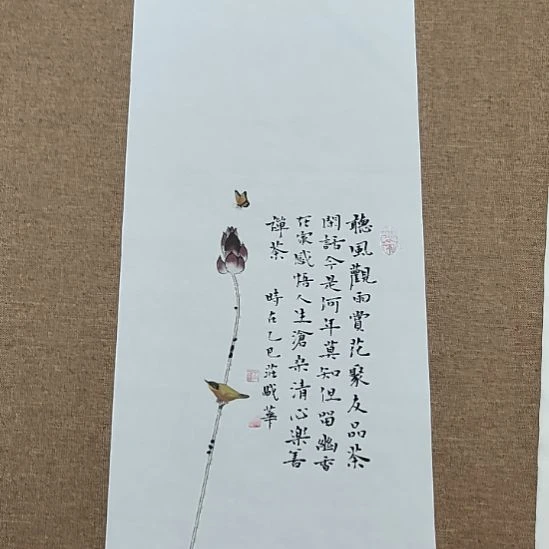 聽風觀雨賞花聚友品茶
閑話今是何年莫知但留幽香
在家感悟人生滄桑清心樂善
禪茶 時在乙巳莊華